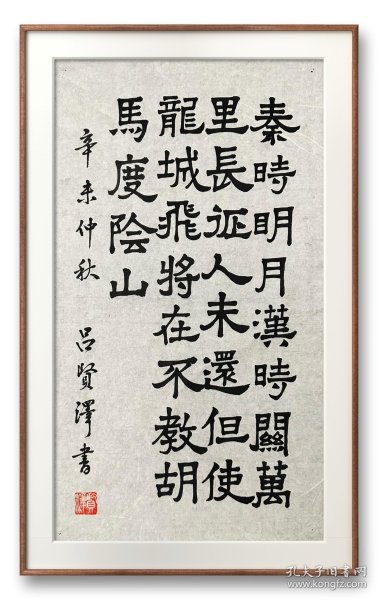 秦時明月漢時關萬
里長征人未還但使
龍城飛將在不教胡
馬度陰山
辛未仲秋 呂賢澤書
孔夫子旧书网
www.kongfz.com